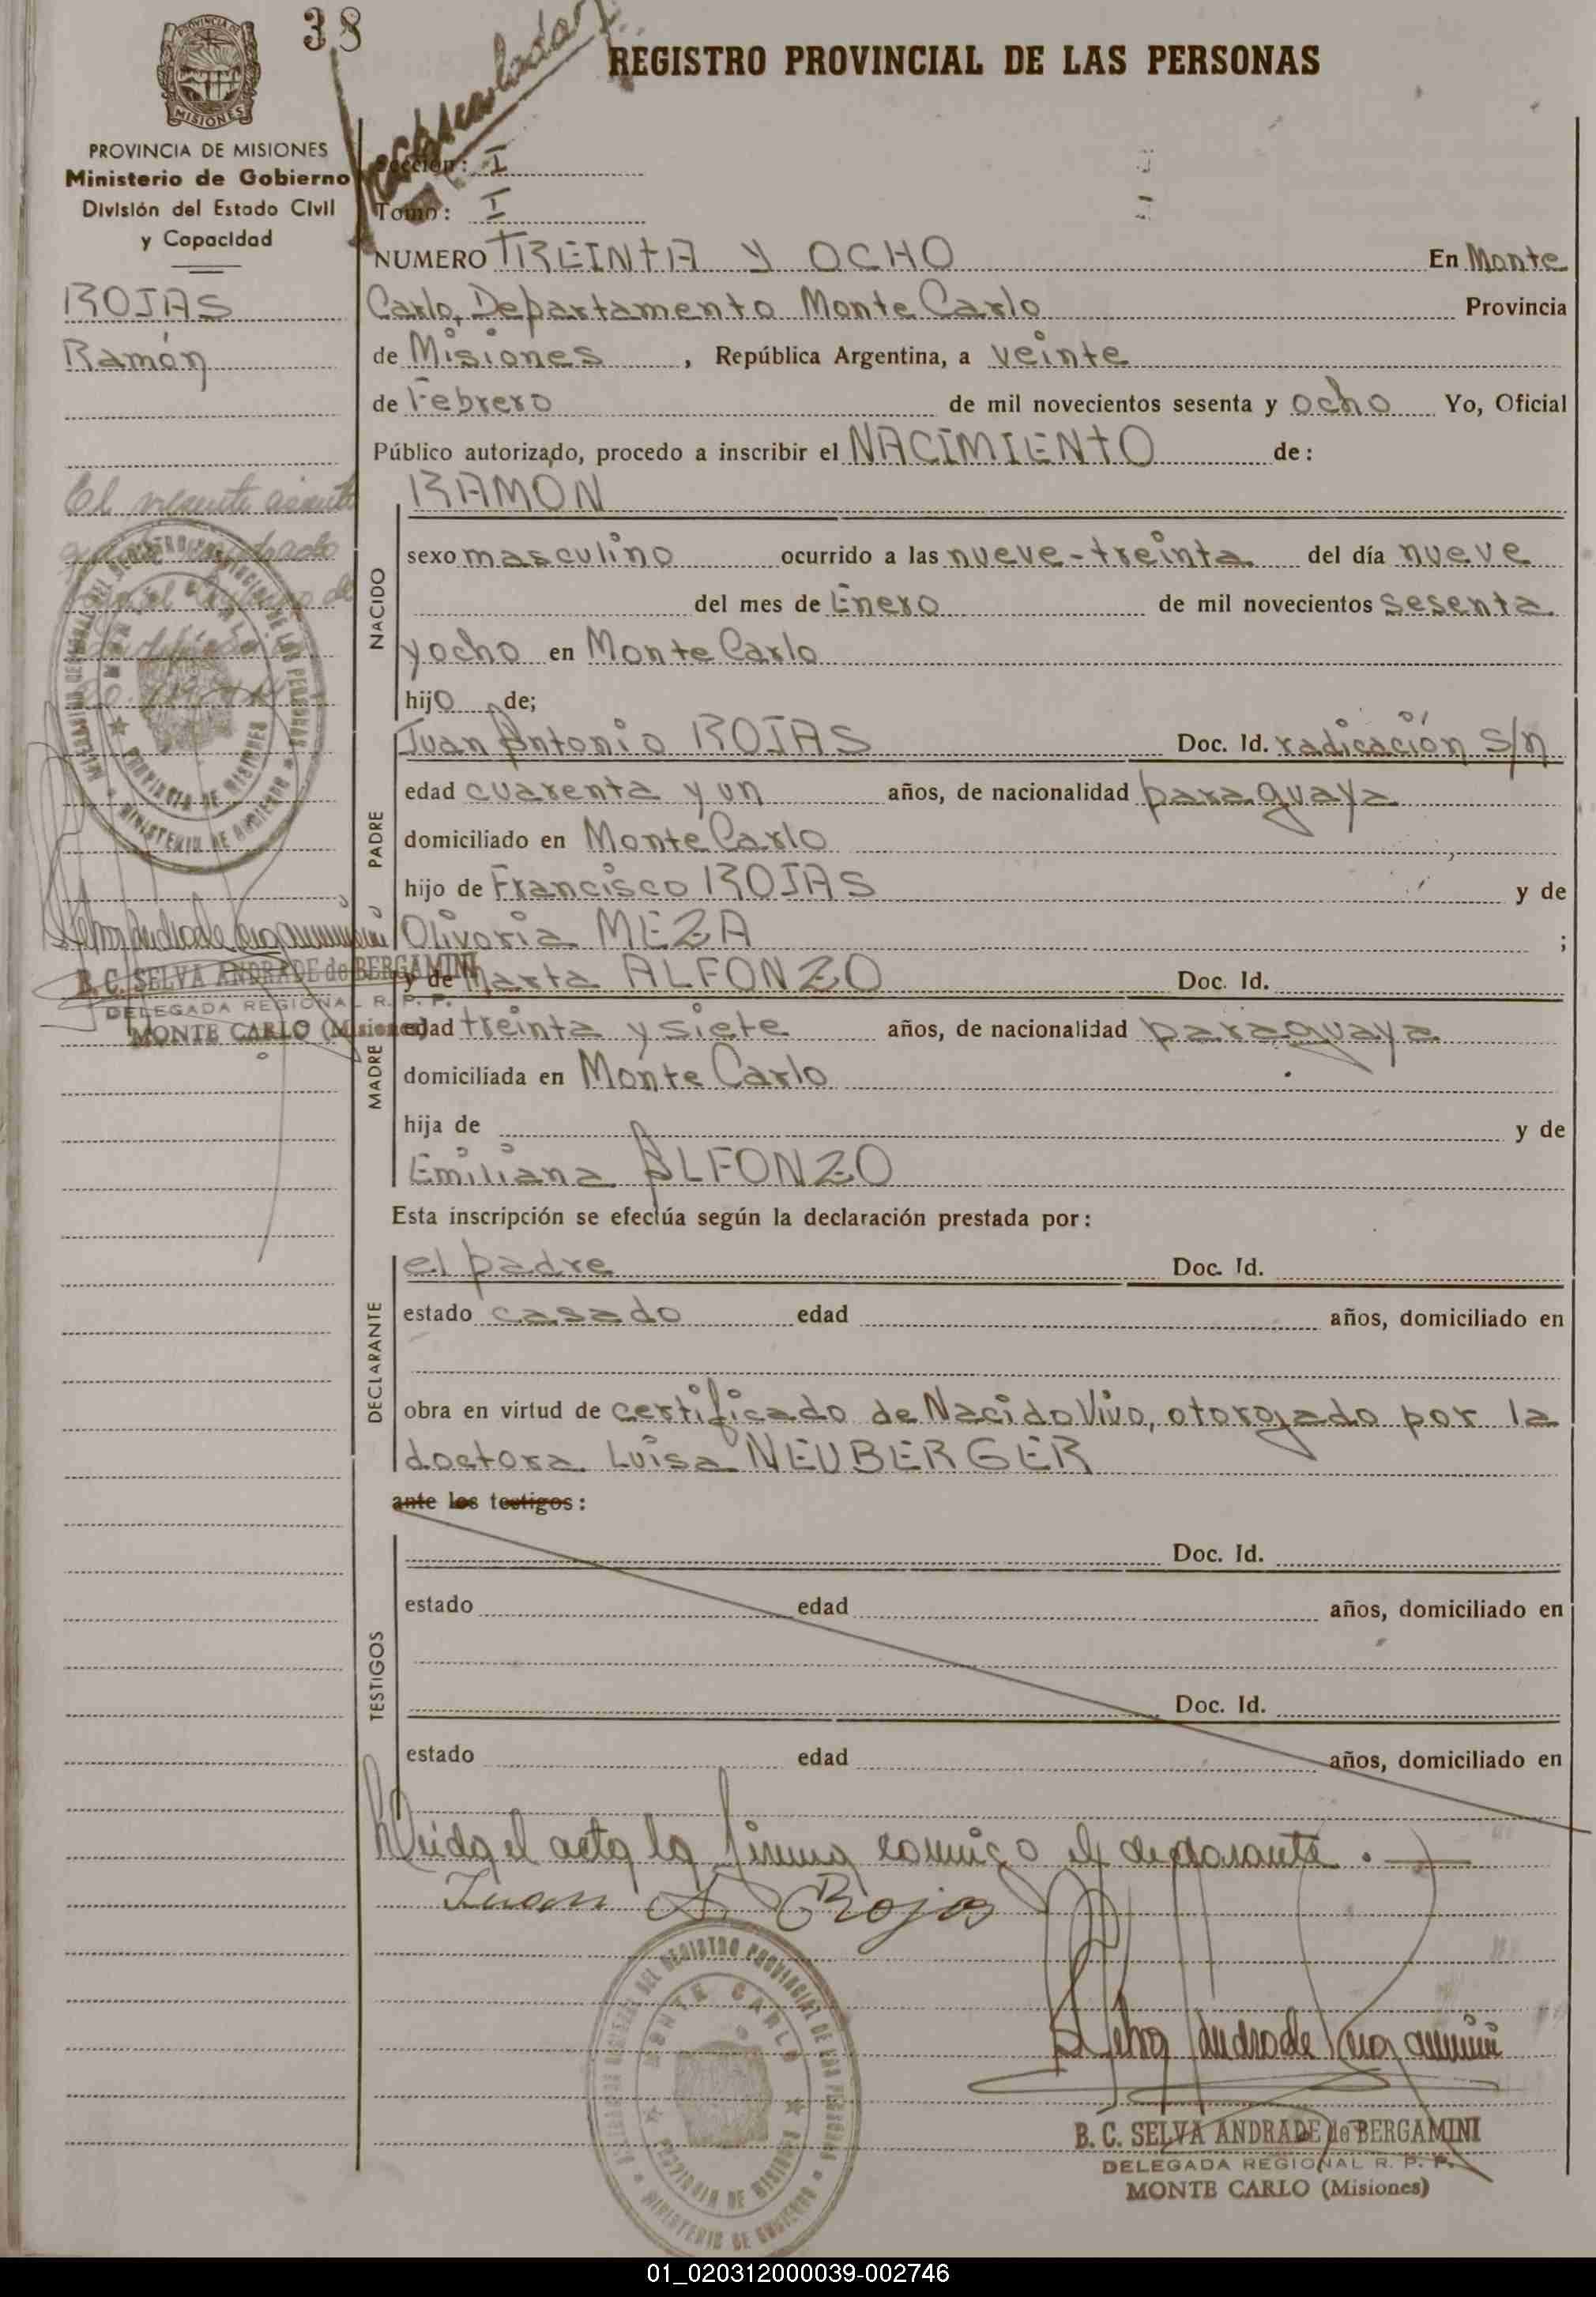 38
REGISTRO PROVINCIAL DE LAS PERSONAS
MISIONES
PROVINCIA DE MISIONES
Ministerio de Gobierno
División del Estado Civil
y Capacidad
Sección: I
Tomo: I
NUMERO TREINTA Y OCHO En Monte
ROJAS
Carlo, Departamento Monte Carlo Provincia
Ramón
de Misiones, República Argentina, a veinte
de Febrero de mil novecientos sesenta y ocho Yo, Oficial
Público autorizado, procedo a inscribir el NACIMIENTO de:
RAMON
El presente asiento
NACIDO
sexo masculino ocurrido a las nueve-treinta del día nueve
del mes de Enero de mil novecientos sesenta
y ocho en Monte Carlo
hijo de;
PADRE
Juan Antonio ROJAS Doc. Id. radicación s/n
edad cuarenta y un años, de nacionalidad paraguaya
domiciliado en Monte Carlo
hijo de Francisco ROJAS y de
Olivoria MEZA ;
B. C. SELVA ANDRADE de BERGAMINI
DELEGADA REGIONAL R. P. P.
MONTE CARLO (Misiones)
MADRE
y de Marta ALFONZO Doc. Id.
edad treinta y siete años, de nacionalidad paraguaya
domiciliada en Monte Carlo
hija de y de
Emiliana ALFONZO
Esta inscripción se efectúa según la declaración prestada por:
DECLARANTE
el padre Doc. Id.
estado casado edad años, domiciliado en
obra en virtud de certificado de Nacido Vivo, otorgado por la
doctora Luisa NEUBERGER
ante los testigos:
TESTIGOS
Doc. Id.
estado edad años, domiciliado en
Doc. Id.
estado edad años, domiciliado en
Leída el acta la firma conmigo el declarante.
Juan A. Rojas
MONTE CARLO
PROVINCIA DE MISIONES
MINISTERIO DE GOBIERNO
B. C. SELVA ANDRADE de BERGAMINI
DELEGADA REGIONAL R. P. P.
MONTE CARLO (Misiones)
01_020312000039-002746